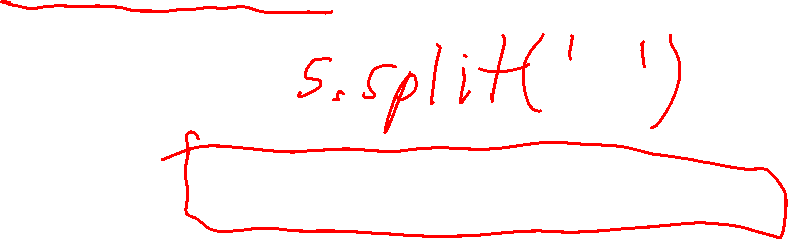 s.split(' ')